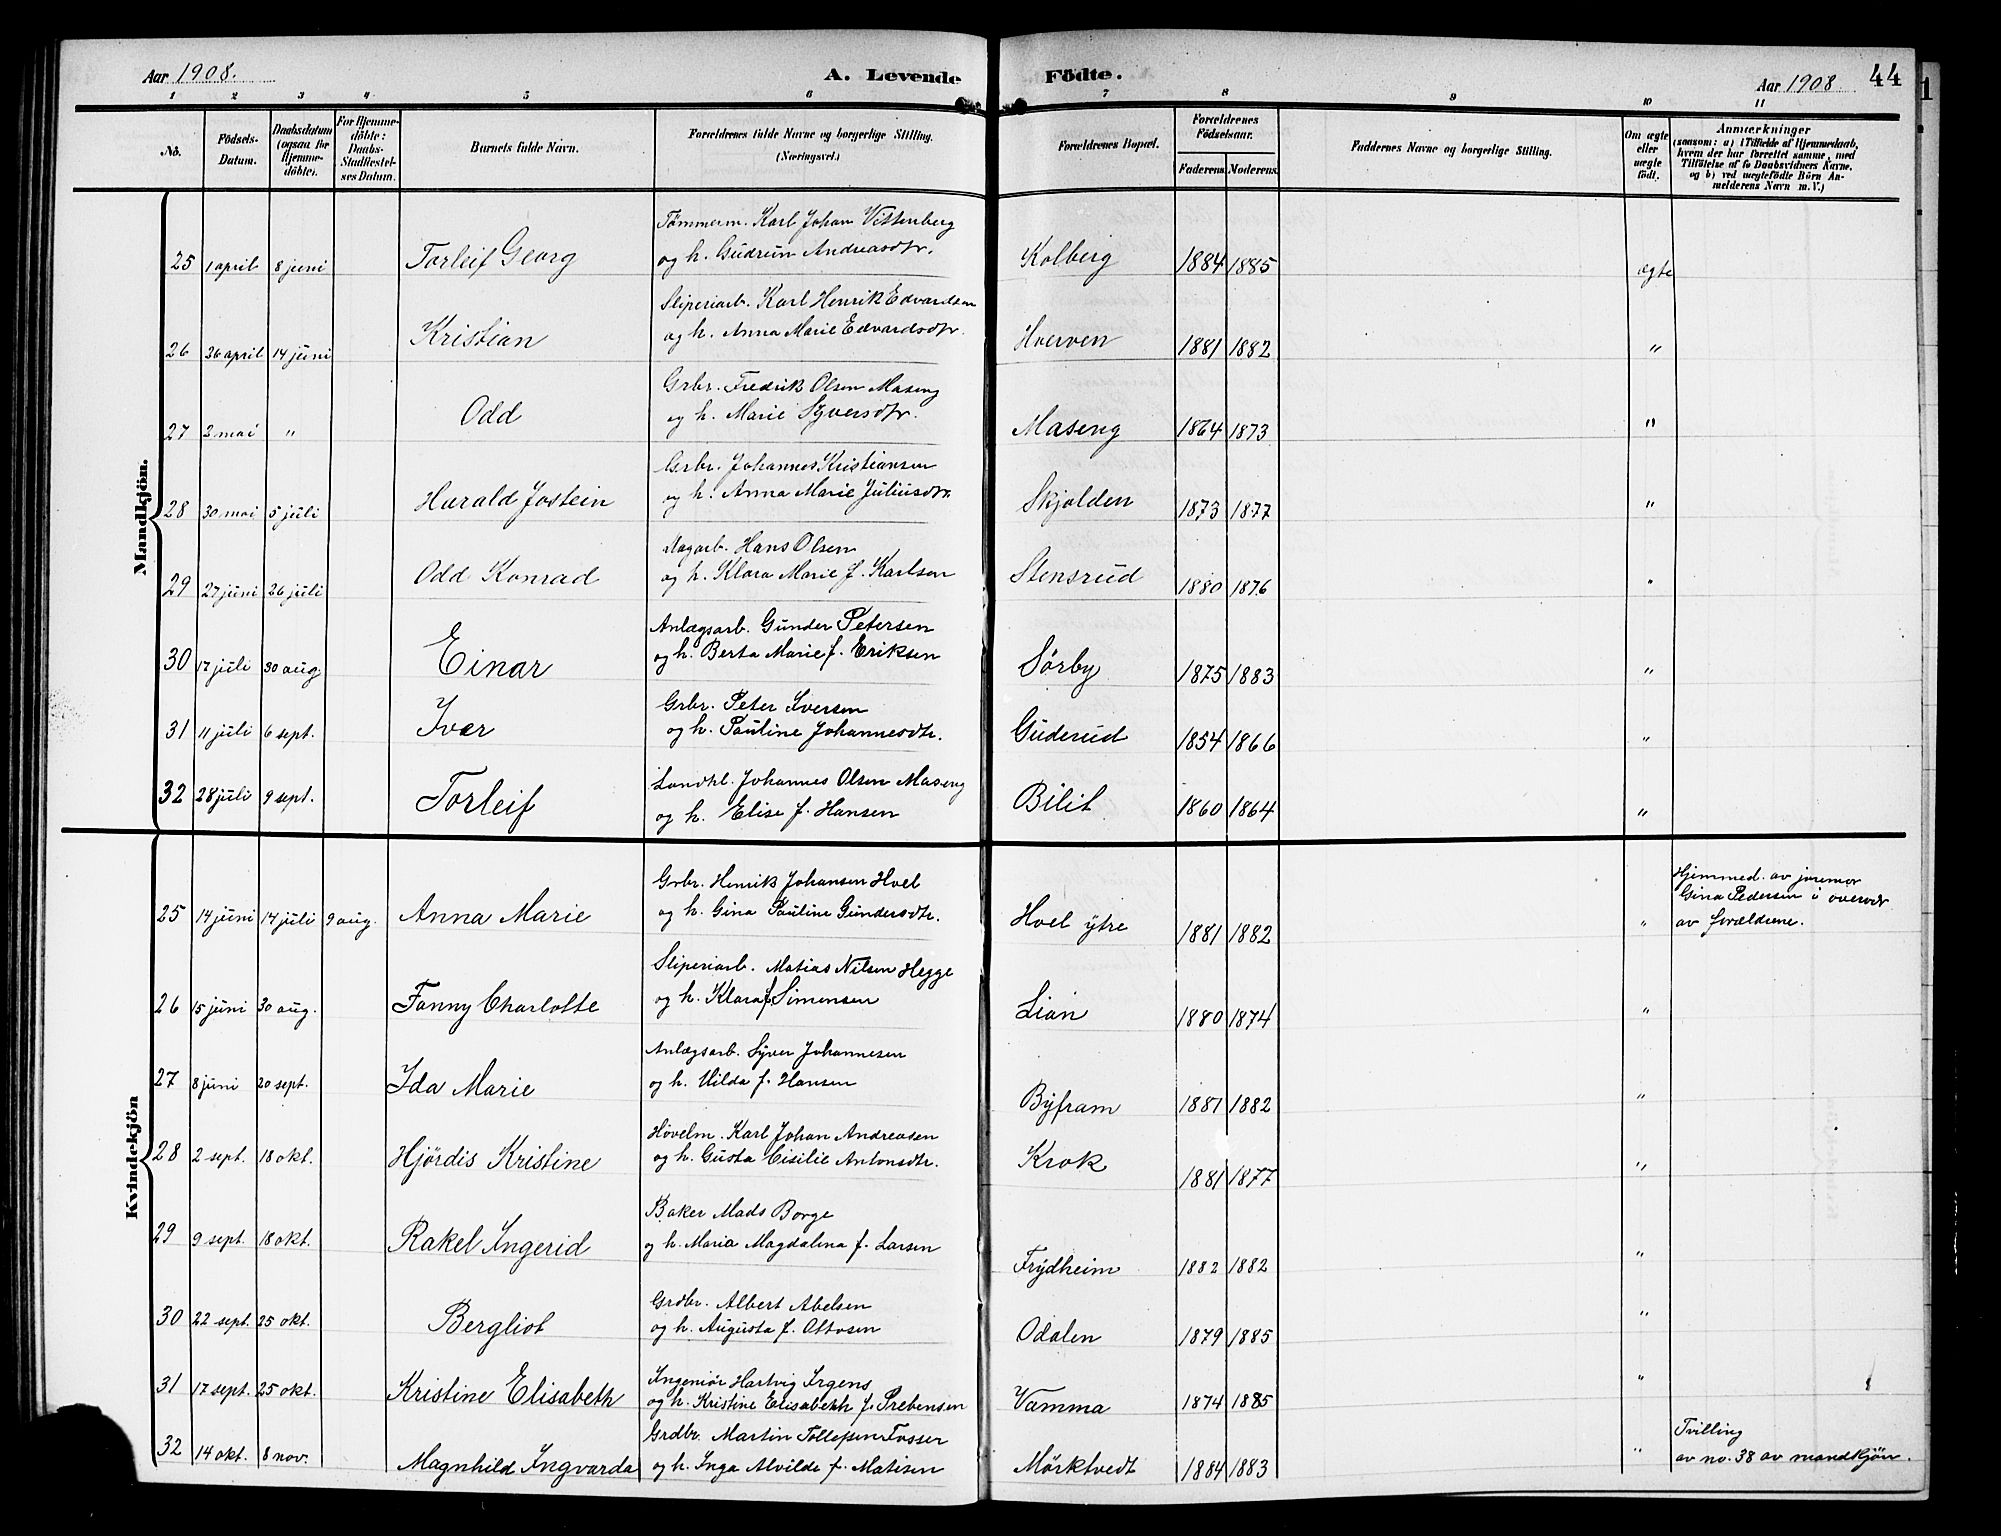 Aar 1908. A. Levende Födte. Aar 1908. 44
1 2 3 4 5 6 7 8 9 10 11
No. Födsels-Datum. Daabsdatum (ogsaa for Hjemmedöbte). For Hjemmedöbte: Daabs-Stadfæstelses Datum. Barnets fulde Navn. Forældrenes fulde Navne og borgerlige Stilling. (Næringsvei.) Forældrenes Bopæl. Forældrenes Födselsaar. Faderens. Moderens. Faddernes Navne og borgerlige Stilling. Om ægte eller uægte födt. Anmærkninger (saasom: a) i Tilfælde af Hjemmedaab, hvem der har forrettet samme, med Tilföielse af to Daabsvidners Navne, og b) ved uægtefödte Börn Anmelderens Navn m. V.)
Mandkjön.
Tømmerm. Karl Johan Vittenberg
25 1 april 8 juni Torleif Georg og h. Gudrun Andreasdtr. Kolberg 1884 1885 ægte
Sliperiarb. Karl Henrik Edvardsen
26 26 april 14 juni Kristian og h. Anna Marie Edvardsdtr. Hverven 1881 1882 "
Grbr. Fredrik Olsen Maseng
27 3 mai " Odd og h. Marie Syversdtr. Maseng 1864 1873 "
Grbr. Johannes Kristiansen
28 30 mai 5 juli Harald Jostein og h. Anna Marie Juliusdtr. Skjolden 1873 1877 "
Hans Olsen
29 27 juni 26 juli Odd Konrad og h. Klara Marie f. Karlsen Stensrud 1880 1876 "
Anlægsarb. Gunder Petersen
30 17 juli 30 aug Einar og h. Berta Marie f. Eriksen Sörby 1875 1883 "
Grbr. Peter Iversen
31 11 juli 6 sept. Ivar og h. Pauline Johannesdtr. Guderud 1854 1866 "
Landhl. Johannes Olsen Maseng
32 28 juli 9 sept. Torleif og h. Elise f. Hansen Bilit 1860 1864 "
Kvindekjön
Grbr. Henrik Johansen Hoel Hjemmed. av joremor
25 14 juni 14 juli 9 aug. Anna Marie og h. Gina Pauline Gundersdtr. Hoel ytre 1881 1882 " Gina Pedersen i overvær
av forældrene.
Sliperiarb. Matias Nilsen Hegge
26 15 juni 30 aug. Fanny Charlotte og h. Klara f. Simensen Lian 1880 1874 "
Anlægsarb. Syver Johannesen
27 8 juni 20 sept. Ida Marie og h. Hilda f. Hansen Byfram 1881 1882 "
Høvelm. Karl Johan Andreasen
28 2 sept. 18 okt. Hjördis Kristine og h. Gusta Cisilie Antonsdtr. Krok 1881 1877 "
Baker Mads Borge
29 9 sept. 18 okt. Rakel Ingerid og h. Maria Magdalena f. Larsen Frydheim 1882 1882 "
Grdbr. Albert Abelsen
30 22 sept. 25 okt. Bergliot og h. Augusta f. Ottosen Odalen 1879 1885 "
Ingeniör Hartvig Irgens
31 17 sept. 25 okt. Kristine Elisabeth og h. Kristine Elisabeth f. Prebensen Vamma 1874 1885 "
Grdbr. Martin Tollefsen Fosser Tvilling
32 14 okt. 8 nov. Magnhild Ingvarda og h. Inga Alvilde f. Matisen Mörktvedt 1884 1883 " av no. 38 av mandkjön.